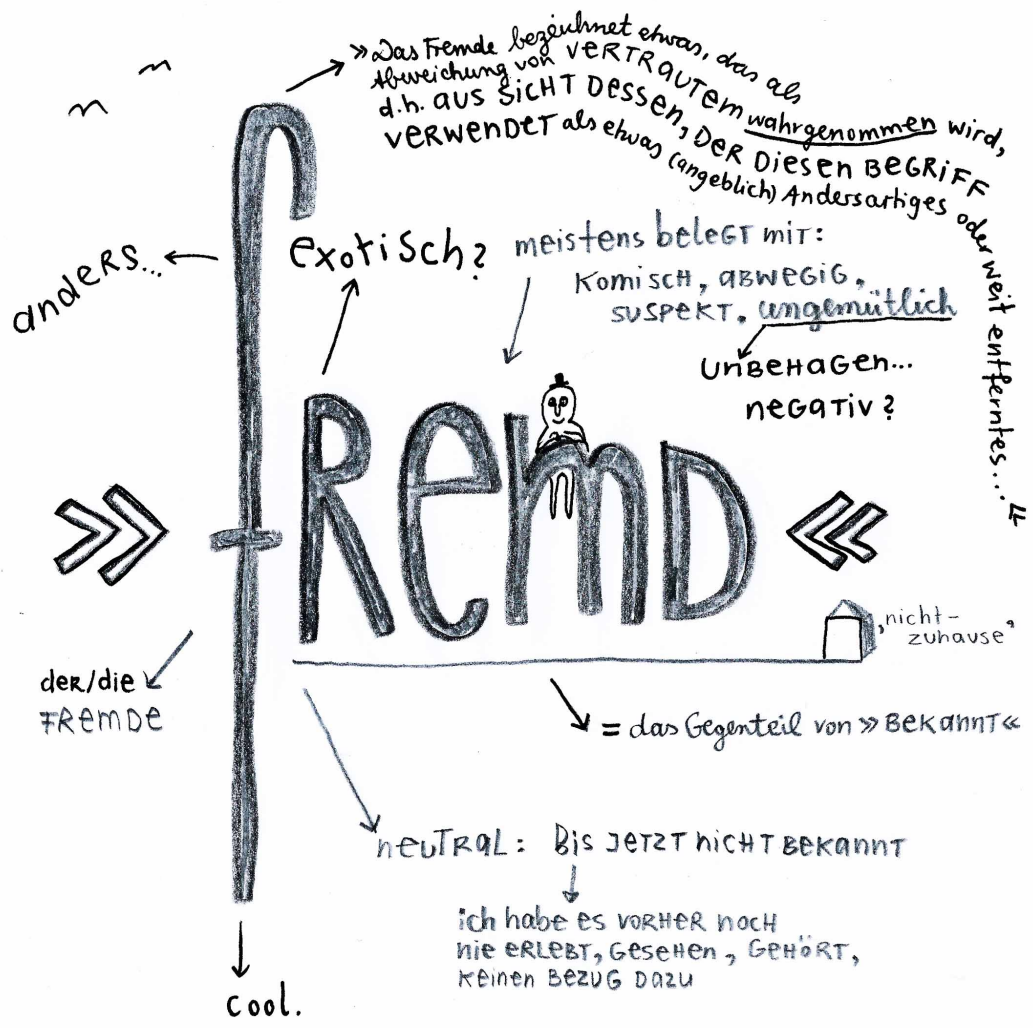 »Das Fremde bezeichnet etwas, das als
Abweichung von VERTRAUTEM wahrgenommen wird,
d.h. aus SICHT DESSEN, DER DIESEN BEGRIFF
VERWENDET als etwas (angeblich) Andersartiges oder weit entferntes...«
anders...
exotisch?
meistens belegt mit:
KOMISCH, ABWEGIG,
SUSPEKT, ungemütlich
UNBEHAGEN...
NEGATIV?
» fRemD «
„nicht-
zuhause“
der/die
FREMDE
= das Gegenteil von »BEKANNT«
NEUTRAL: BIS JETZT NICHT BEKANNT
ich habe es VORHER NOCH
nie ERLEBT, GESEHEN, GEHÖRT,
KEINEN BEZUG DAZU
cool.